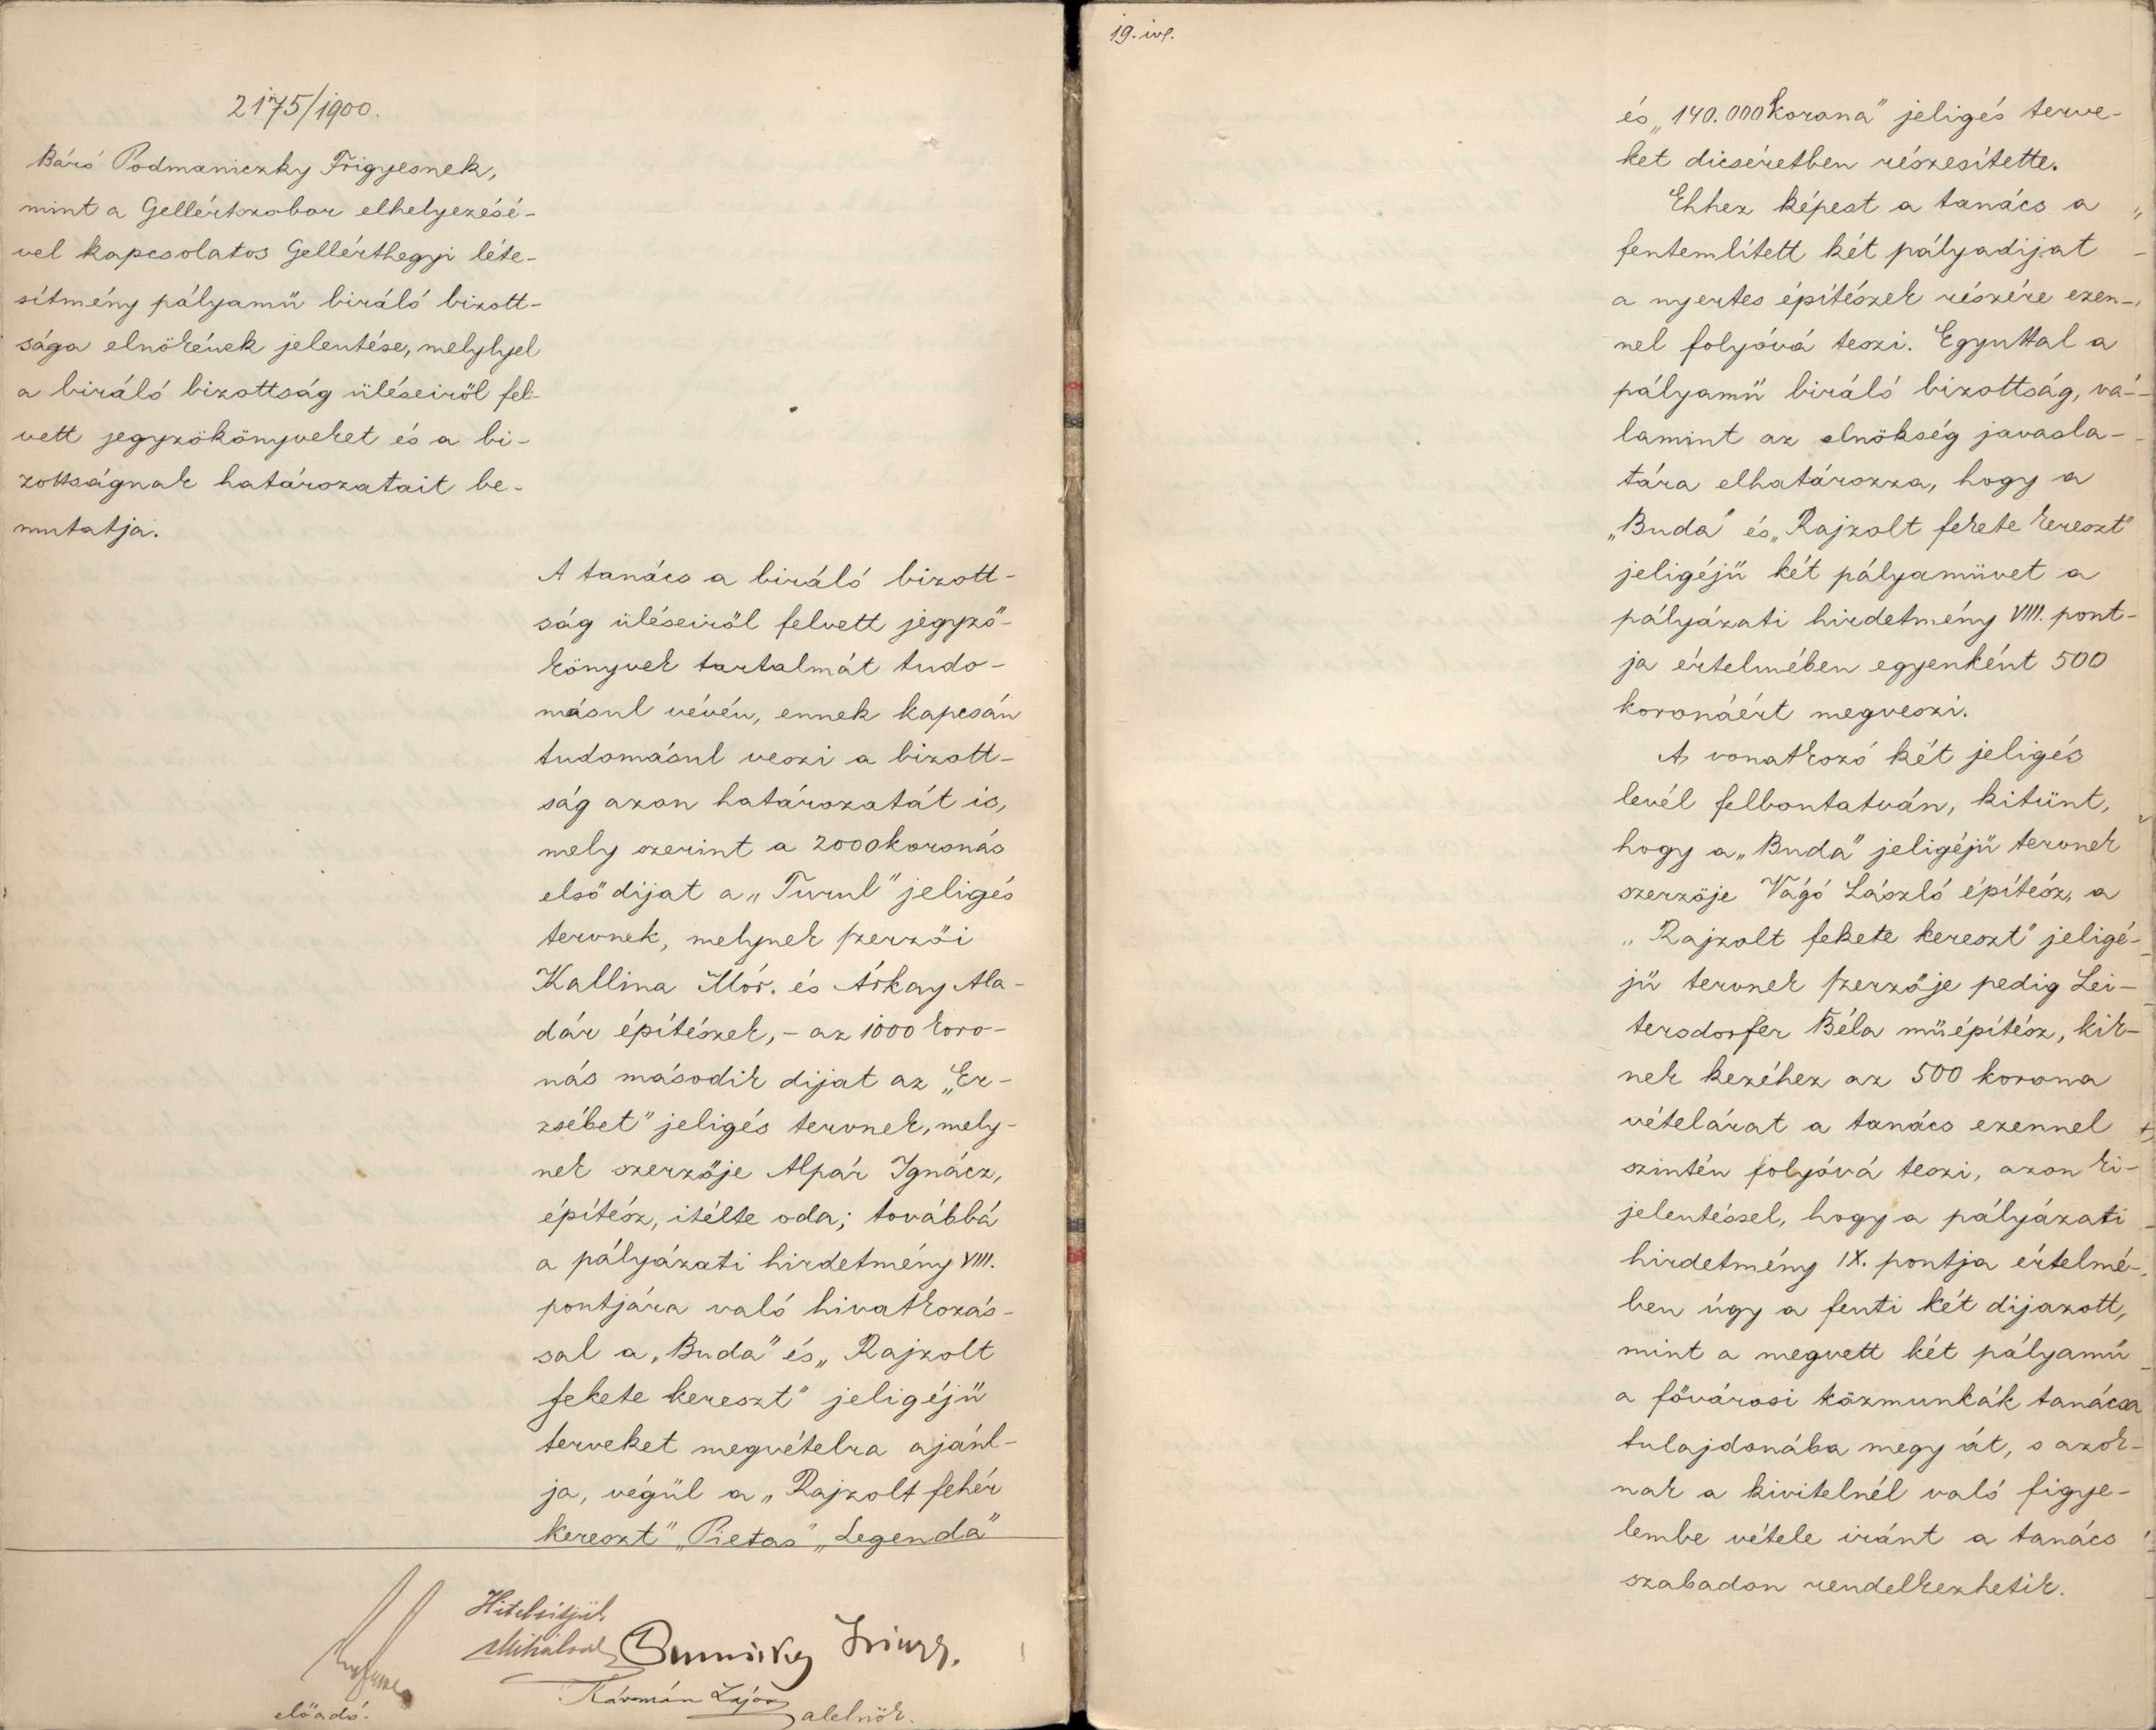 2175/1900.
Báró Podmaniczky Frigyesnek,
mint a Gellértszobor elhelyezésé-
vel kapcsolatos Gellérthegyi léte-
sítmény pályamű biráló bizott-
sága elnökének jelentése, melylyel
a biráló bizottság üléseiről fel-
vett jegyzőkönyveket és a bi-
zottságnak határozatait be-
mutatja.
A tanács a biráló bizott-
ság üléseiről felvett jegyző-
könyvek tartalmát tudo-
másul vévén, ennek kapcsán
tudomásul veszi a bizott-
ság azon határozatát is,
mely szerint a 2000 koronás
első dijat a „Turul" jeligés
tervnek, melynek szerzői
Kallina Mór. és Árkay Ala-
dár építészek, - az 1000 koro-
nás második dijat az „Er-
zsébet" jeligés tervnek, mely-
nek szerzője Alpár Ignácz,
építész, itélte oda; továbbá
a pályázati hirdetmény VIII.
pontjára való hivatkozás-
sal a „Buda" és „Rajzolt
fekete kereszt" jeligéjű
terveket megvételra ajánl-
ja, végül a „Rajzolt fehér
kereszt" „Pietas" „Legenda"
Hitelesitjük
előadó.
Kármán Lajos
alelnök.
19. ív.
és „140.000 korona" jeligés terve-
ket dicséretben részesítette.
Ehhez képest a tanács a
fentemlített két pályadijat
a nyertes építészek részére ezen-
nel folyóvá teszi. Egyuttal a
pályamű biráló bizottság, va-
lamint az elnökség javasla-
tára elhatározza, hogy a
„Buda" és „Rajzolt fekete kereszt"
jeligéjű két pályaművet a
pályázati hirdetmény VIII. pont-
ja értelmében egyenként 500
koronáért megveszi.
A vonatkozó két jeligés
levél felbontatván, kitünt,
hogy a „Buda" jeligéjű tervnek
szerzője Vágó László építész, a
„Rajzolt fekete kereszt" jeligé-
jű tervnek szerzője pedig Lei-
tersdorfer Béla műépítész, kik-
nek kezéhez az 500 korona
vételárat a tanács ezennel
szintén folyóvá teszi, azon ki-
jelentéssel, hogy a pályázati
hirdetmény IX. pontja értelmé-
ben úgy a fenti két dijazott,
mint a megvett két pályamű
a fővárosi közmunkák tanácsa
tulajdonába megy át, s azok-
nak a kivitelnél való figye-
lembe vétele iránt a tanács
szabadon rendelkezhetik.